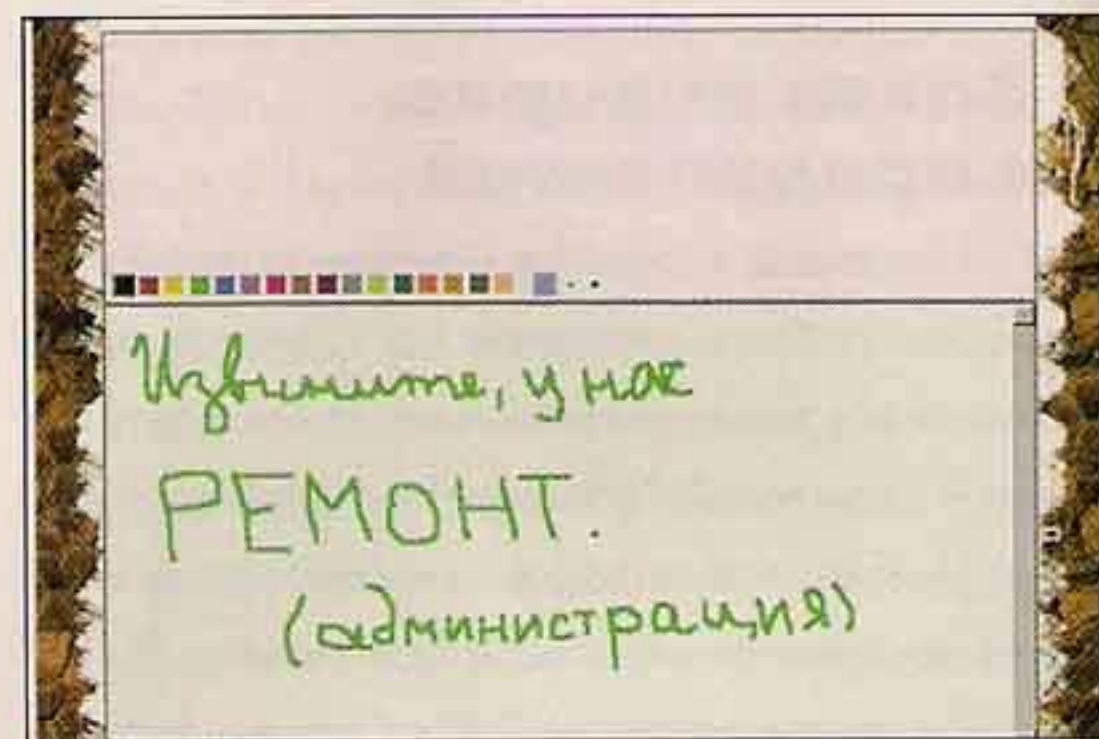 Извините, у нас
РЕМОНТ.
(администрация)